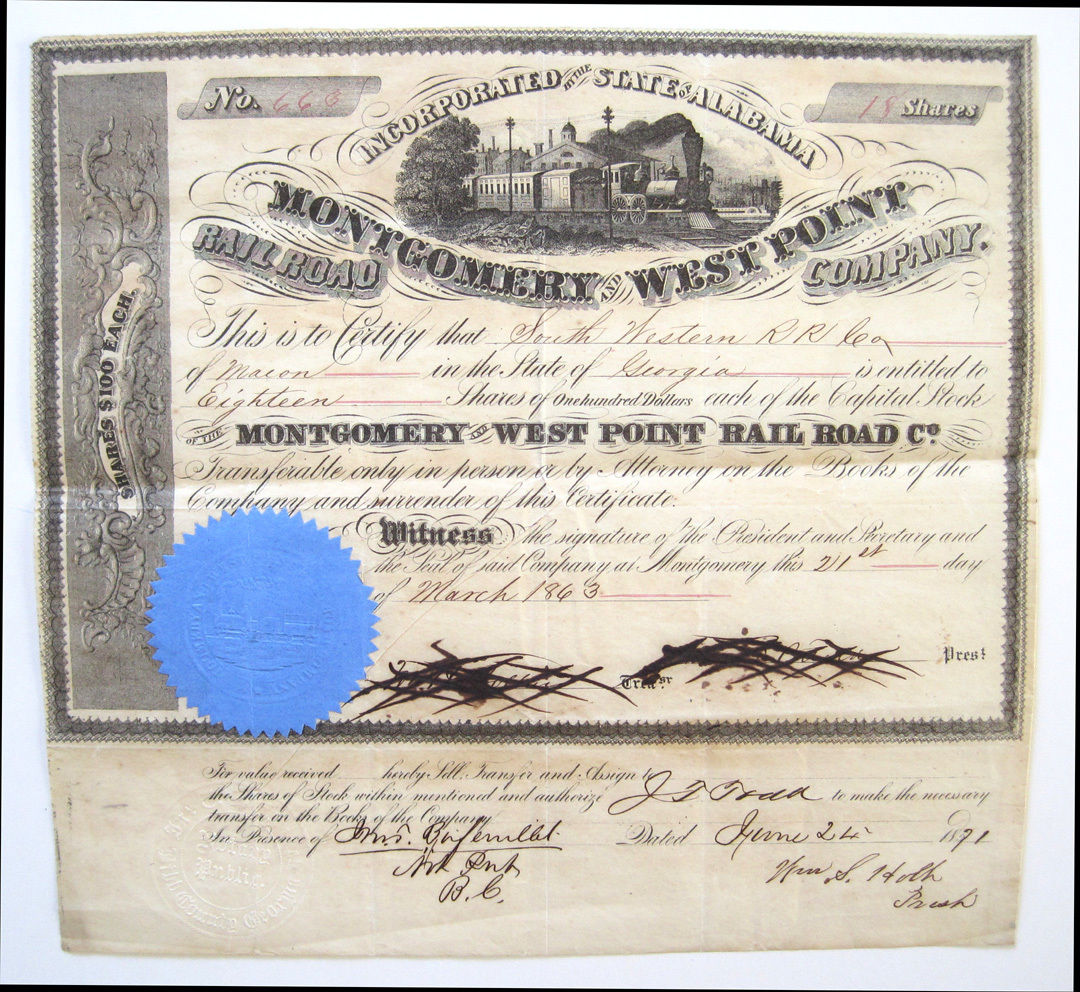 No. 663
18 Shares
INCORPORATED BY THE STATE OF ALABAMA
MONTGOMERY AND WEST POINT
RAIL ROAD COMPANY.
SHARES $100 EACH.
This is to Certify that South Western R R Co
of Macon in the State of Georgia is entitled to
Eighteen Shares of One hundred Dollars each of the Capital Stock
OF THE MONTGOMERY AND WEST POINT RAIL ROAD Co.
Transferable only in person or by Attorney on the Books of the
Company and surrender of this Certificate.
Witness the signature of the President and Secretary and
the Seal of said Company at Montgomery this 21st day
of March 1863
Treasr
Prest
For value received hereby Sell, Transfer and Assign to
the Shares of Stock within mentioned and authorize J T to make the necessary
transfer on the Books of the Company
In Presence of Dated June 24 1871
B. C.
Wm S. Holt
Presdt
Public
County Georgia